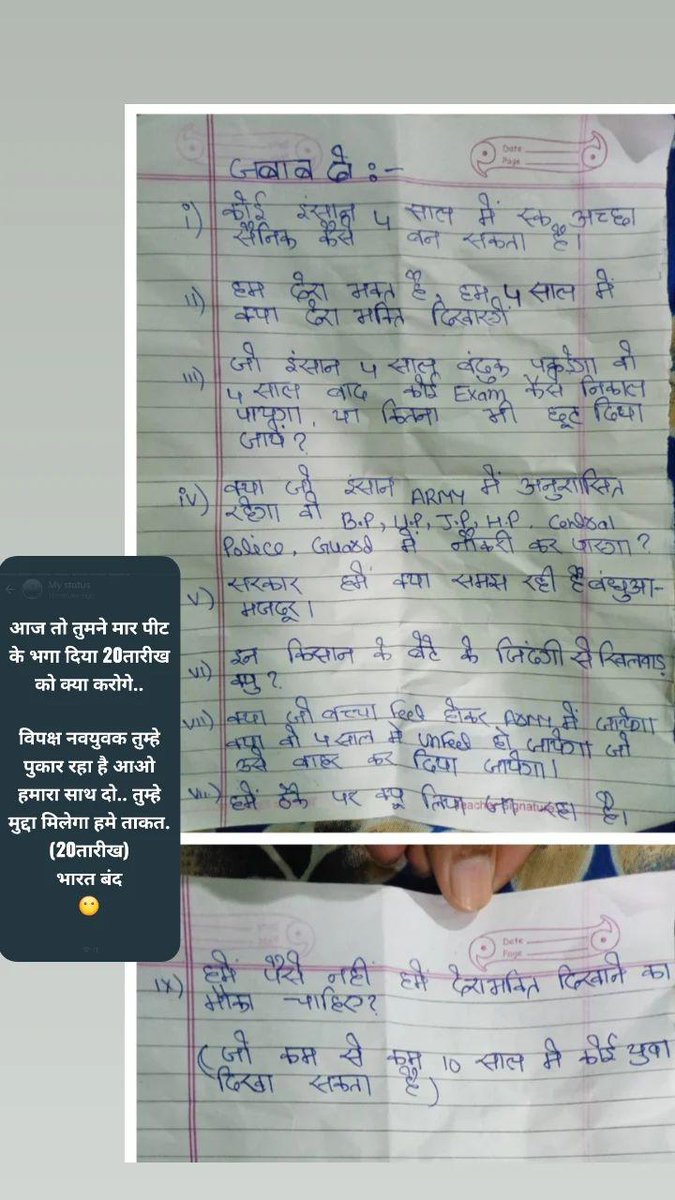 Date
Page
जवाब दे :-
i) कोई इंसान 4 साल में एक अच्छा
सैनिक कैसे बन सकता है।
ii) हम देश भक्त है, हम 4 साल में
क्या देश भक्ति दिखाएगें
iii) जो इंसान 4 साल बंदुक पकड़ेगा वो
4 साल बाद कोई Exam कैसे निकाल
पायेगा, या कितना भी छूट दिया
जाये?
iv) क्या जो इंसान ARMY में अनुशासित
रहेगा वो B.P, U.P, J.P, H.P. Central
Police, Guard में नौकरी कर पाएगा?
v) सरकार हमें क्या समझ रही है बंधुआ-
मजदूर।
vi) इन किसान के बेटे के जिंदगी से खिलवाड़
क्यु?
vii) क्या जो बच्चा feel होकर ARMY में जायेगा
क्या वो 4 साल में unfeel हो जायेगा जो
उसे बाहर कर दिया जायेगा।
viii) हमें ठेके पर क्यू लिया जा रहा है।
Teacher's Signature
My status
आज तो तुमने मार पीट
के भगा दिया 20तारीख
को क्या करोगे..
विपक्ष नवयुवक तुम्हे
पुकार रहा है आओ
हमारा साथ दो.. तुम्हे
मुद्दा मिलेगा हमे ताकत.
(20तारीख)
भारत बंद
😶
Date
Page
ix) हमें पैसे नहीं हमें देशभक्ति दिखाने का
मौका चाहिए?
(जो कम से कम 10 साल मे कोई युवा
दिखा सकता है)